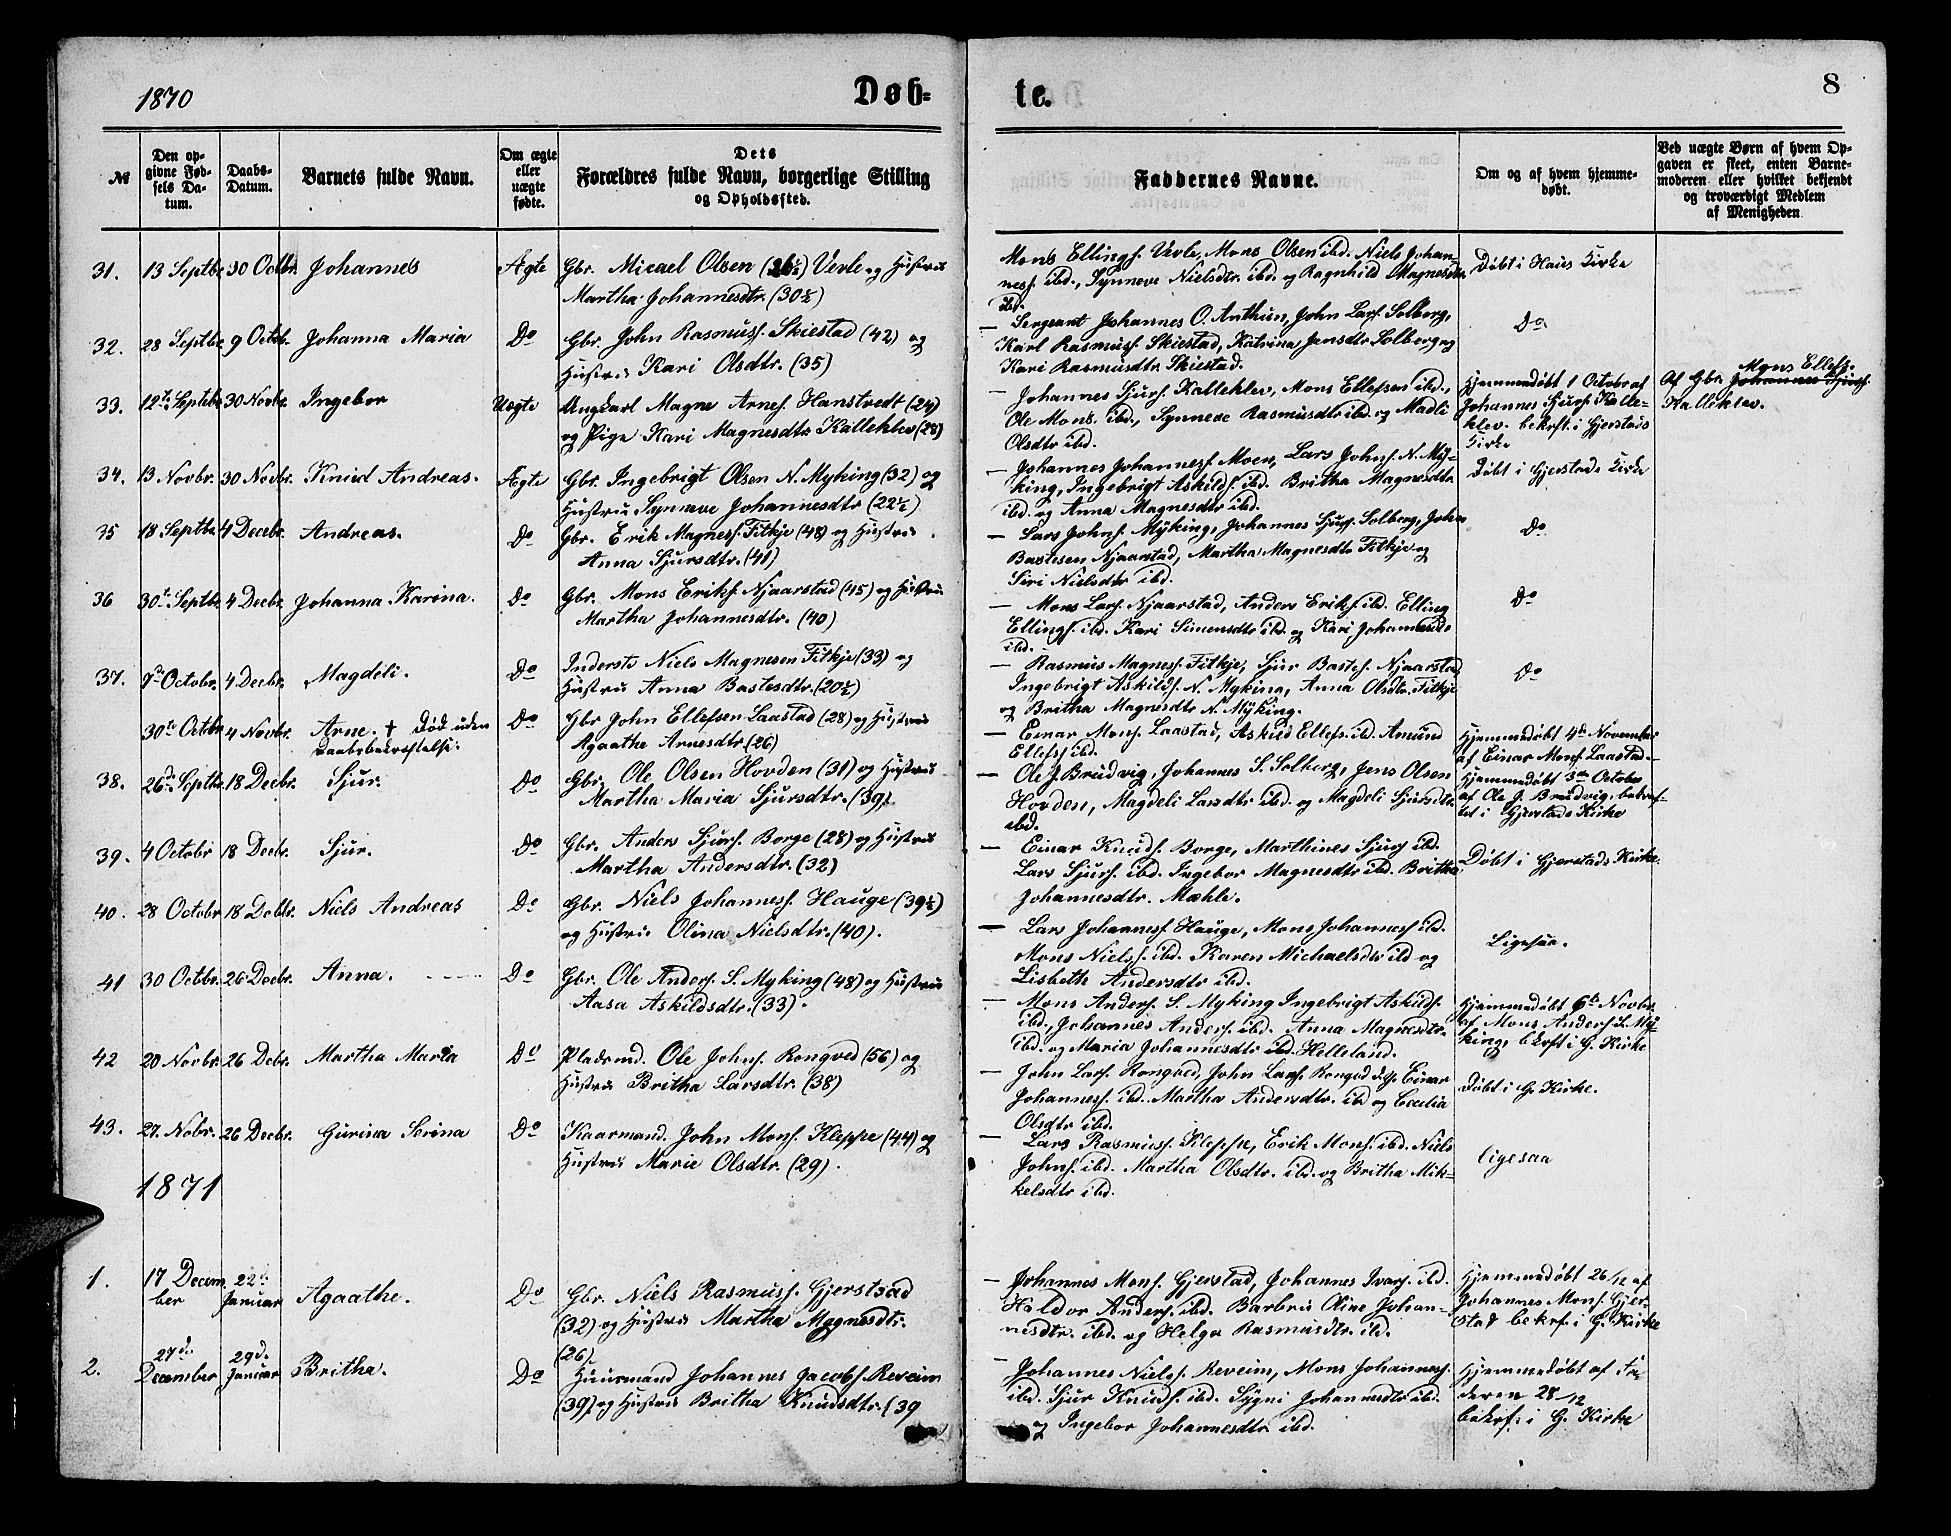 1870
Døb-
te.
8
№
Den op-
givne Fød-
sels Da-
tum.
Daabs-
Datum.
Barnets fulde Navn.
Om ægte
eller
uægte
fødte.
Dets
Forældres fulde Navn, borgerlige Stilling
og Opholdssted.
Faddernes Navne.
Om og af hvem hjemme-
døbt.
Ved uægte Børn af hvem Op-
gaven er skeet, enten Barne-
moderen eller hvilket bekjendt
og troværdigt Medlem
af Menigheden
31. 13 Septbr 30 Octbr. Johannes Ægte Gbr. Micael Olsen (26½) Vevle og Hustru
Martha Johannesdtr. (30½)
Mons Ellingss. Vevle, Mons Olsen ibd. Niels Johan-
ness. ibd., Synneve Nielsdtr. ibd. og Ragnhild Magnesdtr
ibd.
Døbt i Haus Kirke
32. 28 Septbr 9 Octbr. Johanna Maria Do Gbr. John Rasmuss. Skiestad (42) og
Hustru Kari Olsdtr. (35)
— Sergeant Johannes O. Arthun, John Larss. Solberg,
Karl Rasmuss. Skiestad, Katrina Jensdtr Solberg og
Kari Rasmusdtr. Skiestad.
Do
33. 12te Septbr 30 Novbr. Ingebor Uægte Ungkarl Magne Arnes. Hanstvedt (24)
og Pige Kari Magnesdtr Kalleklev (28)
— Johannes Sjurs. Kalleklev, Mons Ellefsen ibd.,
Ole Mons. ibd., Synneve Rasmusdtr ibd. og Madli
Olsdtr ibd.
Hjemmedøbt 1 Octobr af
Johannes Sjurs. Kalle-
klev. bekrft. i Gjerstads
Kirke
Mons Ellefs.
Af Gbr. Johannes Sjurs.
Kalleklev.
34. 13 Novbr. 30 Novbr. Knud Andreas. Ægte Gbr. Ingebrigt Olsen N. Myking (32) og
Hustru Synneve Johannesdtr (22½)
— Johannes Johanness. Moen, Lars Johns. N. My-
king, Ingebrigt Askilds. ibd. Britha Magnesdtr
ibd. og Anna Magnesdtr ibd.
Døbt i Gjerstads Kirke
35 18 Septbr 4 Decbr. Andreas. Do Gbr. Erik Magness. Fitkje (48) og Hustru
Anna Sjursdtr. (41)
— Lars Johns. Myking, Johannes Sjurs. Solberg, John
Bastesen Njaarstad, Martha Magnesdtr Fitkje og
Siri Nielsdtr ibd.
Do
36 30te Septbr 4 Decbr Johanna Karina. Do Gbr. Mons Eriks. Njaarstad (45) og Hustru
Martha Johannesdtr. (40)
— Mons Lars. Njaarstad, Anders Eriks. ibd. Elling
Ellings. ibd. Kari Simensdtr ibd. og Kari Johannesdtr
ibd.
Do
37. 7de Octobr. 4 Decbr. Magdeli. Do Inderste Niels Magnesen Fitkje (33) og
Hustru Anna Bastesdtr. (20½)
— Rasmus Magness. Fitkje, Sjur Bastes. Njaarstad,
Ingebrigt Askilds. N. Myking, Anna Olsdtr. Fitkje
og Britha Magnesdtr N. Myking.
Do
30te Octbr 4 Novbr. Arne. † Død uden
Daabsbekræftelse. Do Gbr John Ellefsen Laastad (28) og Hustru
Agaathe Arnesdtr (26)
— Einar Mons. Laastad, Askild Ellefs. ibd. Amund
Ellefs. ibd.
Hjemmedøbt 4de November
af Einar Mons. Laastad.
38. 26de Septbr. 18 Decbr. Sjur. Do Gbr. Ole Olsen Hovden (31) og Hustru
Martha Maria Sjursdtr. (39).
— Ole J. Brudvig, Johannes S. Solberg, Jens Olsen
Hovden, Magdeli Larsdtr ibd. og Magdeli Sjursdtr
ibd.
Hjemmedøbt 3die October
af Ole J. Brudvig, bekræf-
tet i Gjerstads Kirke
39. 4 Octobr 18 Decbr. Sjur. Do Gbr. Anders Sjurs. Borge (28) og Hustru
Martha Andersdtr. (32)
— Einar Knuds. Borge, Marthines Sjurs ibd.
Lars Sjurs. ibd. Ingebor Magnesdtr ibd. Britha
Johannesdtr. Mæhle.
Døbt i Gjerstads Kirke.
40. 28 Octobr 18 Debbr. Niels Andreas Do Gbr. Niels Johanness. Hauge (39½)
og Hustru Olina Nielsdtr. (40).
— Lars Johanness. Hauge, Mons Johanness ibd.
Mons Nielss. ibd. Karen Michaelsdtr ibd og
Lisbeth Andersdtr ibd.
Ligesaa.
41 30 Octbr. 26 Decbr. Anna. Do Gbr. Ole Anders. S. Myking (48) og Hustru
Aasa Askildsdtr. (33).
— Mons Anders. S. Myking Ingebrigt Askilds.
ibd., Johannes Anders. ibd. Anna Magnesdtr.
ibd. og Maria Johannesdtr ibd. Helleland.
Hjemmedøbt 6te Novbr
af Mons Anders S. My-
king, bekrft i G. Kirke
42 20 Novbr. 26 Debr. Martha Maria Do Pladsmd. Ole Johns. Rongved (56) og
Hustru Britha Larsdtr. (38)
— John Lars. Rongved, John Lars. Rongved Einar
Johanness. ibd. Martha Andersdtr. ibd og Cecilia
Olsdtr ibd.
Døbt i G. Kirke.
43. 27. Nobr. 26 Decbr. Gurina Serina Do Kaarmand. John Mons. Kleppe (44) og
Hustru Marie Olsdtr. (29).
— Lars Rasmuss. Kleppe, Erik Mons. ibd. Niels
Johns. ibd. Martha Olsdtr. ibd. og Britha Mik-
kelsdtr ibd.
ligesaa
1871
1. 17 Decem
ber 22de
Januar Agaathe. Do Gbr. Niels Rasmuss. Gjerstad
(32) og Hustru Martha Magnesdtr.
(26)
— Johannes Mons. Gjerstad, Johannes Ivars. ibd.
Haldor Anders. ibd. Barbru Oline Johan-
nesdtr. ibd. og Helga Rasmusdtr. ibd.
Hjemmedøbt 26/12 af
Johannes Mons. Gjer-
stad bekrf. i G. Kirke
2. 27d.
December 29d.
Januar Britha. Do Huusmand Johannes Jacobs. Reveim
(39) og Hustru Britha Knudsdtr. (39
— Johannes Niels. Reveim, Mons Johanness.
ibd. Sjur Knuds. ibd. Sygni Johannesdtr ibd.
og Ingebor Johannesdtr. ibd.
Hjemmedøbt af Fa-
deren 28/12
bekrf. i G. Kirke